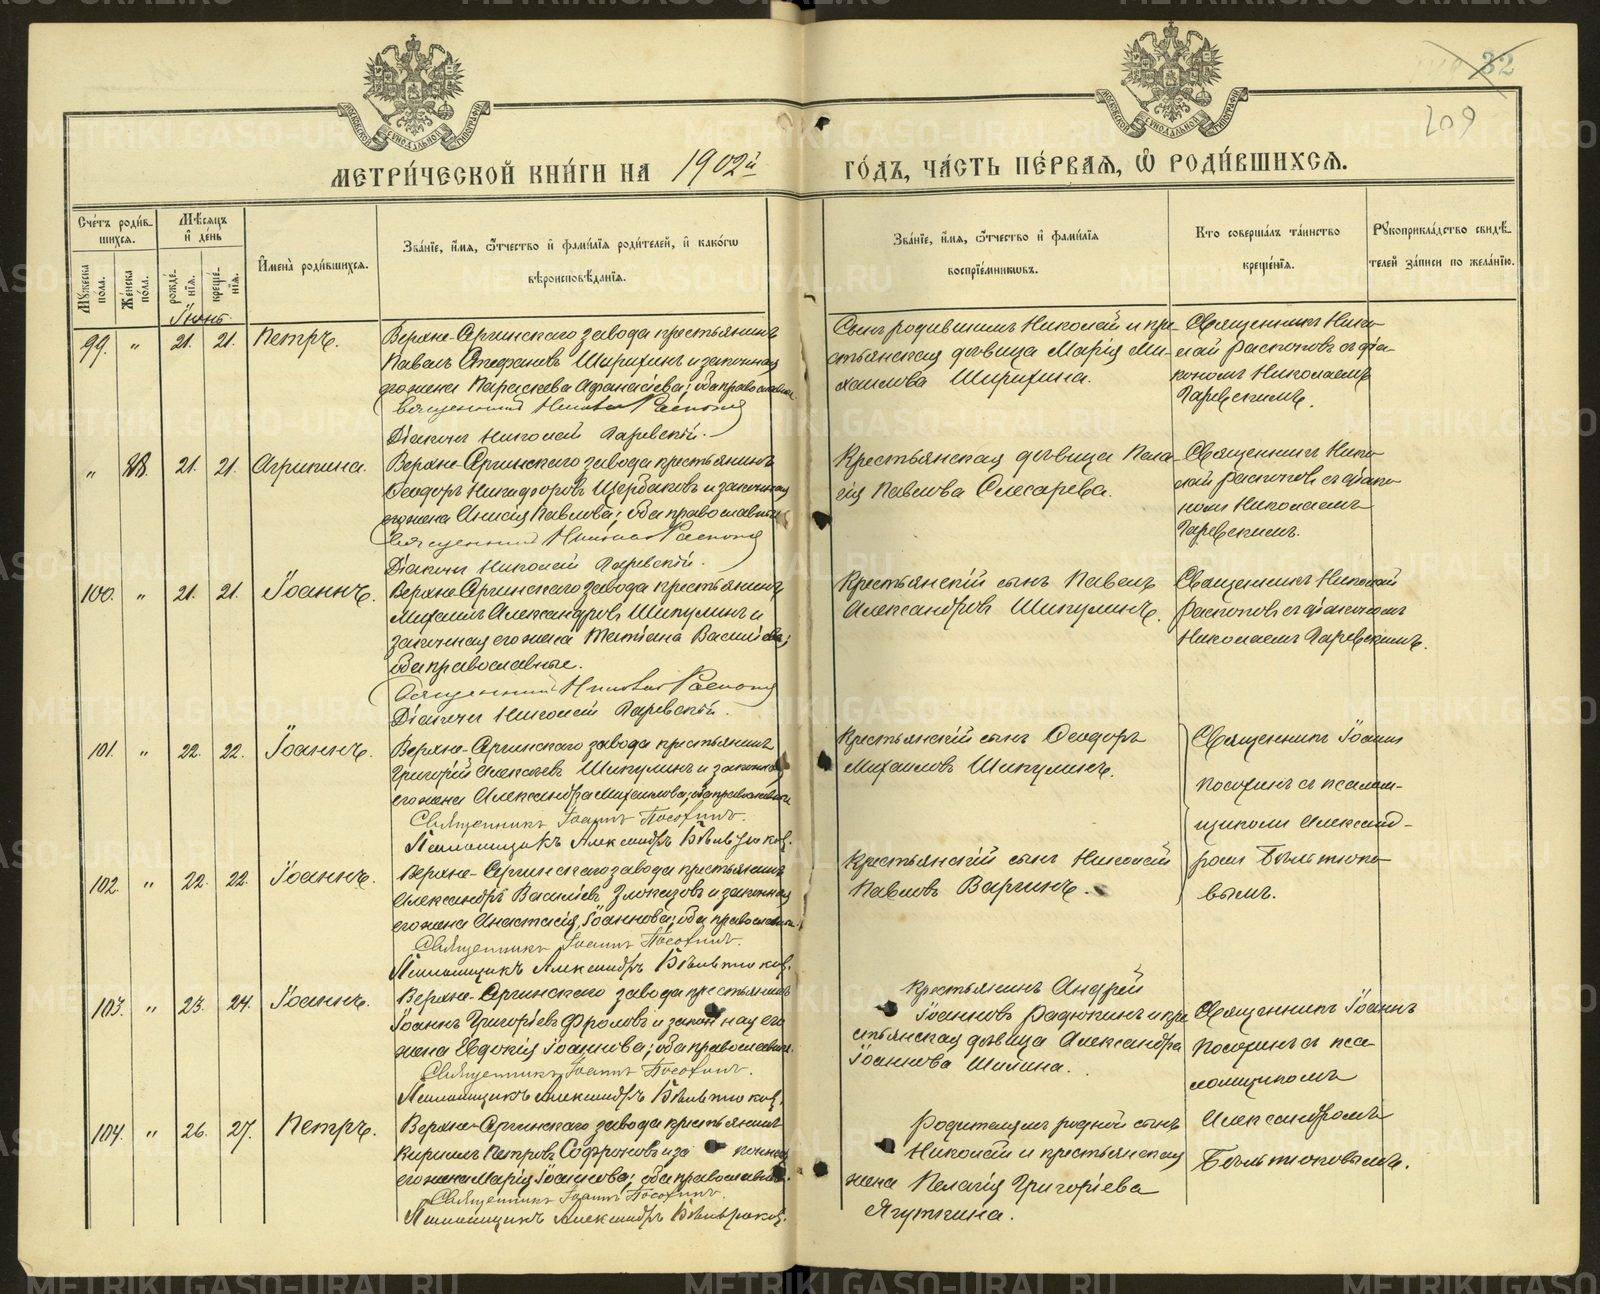 32
209
МЕТРИ́ЧЕСКОЙ КНИ́ГИ НА 1902й ГО́ДЪ, ЧА́СТЬ ПЕ́РВАЯ, Ѡ РОДИ́ВШИХСЯ.
Сче́тъ роди́в-
шихся.
Мѣ́сяцъ
и҆ де́нь
И҆мена̀ роди́вшихся.
Зва́нїе, и҆́мя, ѻ҆́тчество и҆ фами́лїя роди́телей, и҆ како́гѡ
вѣроисповѣ́данїя.
Зва́нїе, и҆́мя, ѻ҆́тчество и҆ фами́лїя
воспрїе́мникѡвъ.
Кто соверша́лъ та́инство
креще́нїя.
Рꙋкоприкла́дство свидѣ́-
телей за́писи по жела́нїю.
Мꙋ́жеска
по́ла.
Же́нска
по́ла.
рожде́-
нїя.
креще́-
нїя.
Іюнь
99. " 21. 21. Петръ.
Верхне-Сергинскаго завода крестьянинъ
Павелъ Стефановъ Ширихинъ и законная
его жена Параскева Афанасіева; оба православные.
Священникъ Николай Распопов
Діаконъ Николай Заревскій.
Сынъ родившимъ Николай и кре-
стьянская дѣвица Марія Ми-
хаилова Ширихина.
Священникъ Нико-
лай Распоповъ съ діа-
кономъ Николаемъ
Заревскимъ.
" 88. 21. 21. Агрипина.
Верхне-Сергинскаго завода крестьянинъ
Ѳеодоръ Никифоровъ Щербаковъ и законная
его жена Анисія Павлова; оба православные
Священникъ Николай Распопов
Діаконъ Николай Заревскій.
Крестьянская дѣвица Пела-
гія Павлова Слесарева.
Священникъ Нико-
лай Распоповъ съ діако-
номъ Николаемъ
Заревскимъ.
100. " 21. 21. Іоаннъ.
Верхне-Сергинскаго завода крестьянинъ
Михаилъ Александровъ Шипулинъ и
законная его жена Татіана Василіева;
оба православные.
Священникъ Николай Распопов
Діаконъ Николай Заревскій.
Крестьянскій сынъ Павелъ
Александровъ Шипулинъ.
Священникъ Николай
Распоповъ съ діакономъ
Николаемъ Заревскимъ.
101. " 22. 22. Іоаннъ.
Верхне-Сергинскаго завода крестьянинъ
Григорій Алексіевъ Шипулинъ и законная
его жена Александра Михаилова; оба православные
Священникъ Іоаннъ Посохинъ.
Псаломщикъ Александръ Бѣльтюков.
Крестьянскій сынъ Ѳеодоръ
Михаиловъ Шипулинъ.
Священникъ Іоаннъ
Посохинъ съ псалом-
щикомъ Александ-
ромъ Бѣльтюко-
вымъ.
102. " 22. 22. Іоаннъ.
Верхне-Сергинскаго завода крестьянинъ
Александръ Василіевъ Злоказовъ и законная
его жена Анастасія Іоаннова; оба православные.
Священникъ Іоаннъ Посохинъ.
Псаломщикъ Александръ Бѣльтюков.
Крестьянскій сынъ Николай
Павловъ Варгинъ.
103. " 23. 24. Іоаннъ.
Верхне-Сергинскаго завода крестьянинъ
Іоаннъ Григоріевъ Фроловъ и законная его
жена Евдокія Іоаннова; оба православные.
Священникъ Іоаннъ Посохинъ.
Псаломщикъ Александръ Бѣльтюков.
Крестьянинъ Андрей
Іоанновъ Радюкинъ и кре-
стьянская дѣвица Александра
Іоаннова Шилина.
Священникъ Іоаннъ
Посохинъ съ пса-
ломщикомъ
Александромъ
Бѣльтюковымъ.
104. " 26. 27. Петръ.
Верхне-Сергинскаго завода крестьянинъ
Кириллъ Петровъ Софроновъ и законная
его жена Марія Іоаннова; оба православные.
Священникъ Іоаннъ Посохинъ.
Псаломщикъ Александръ Бѣльтюков.
Родителямъ родной сынъ
Николай и крестьянская
жена Пелагія Григоріева
Ягуткина.